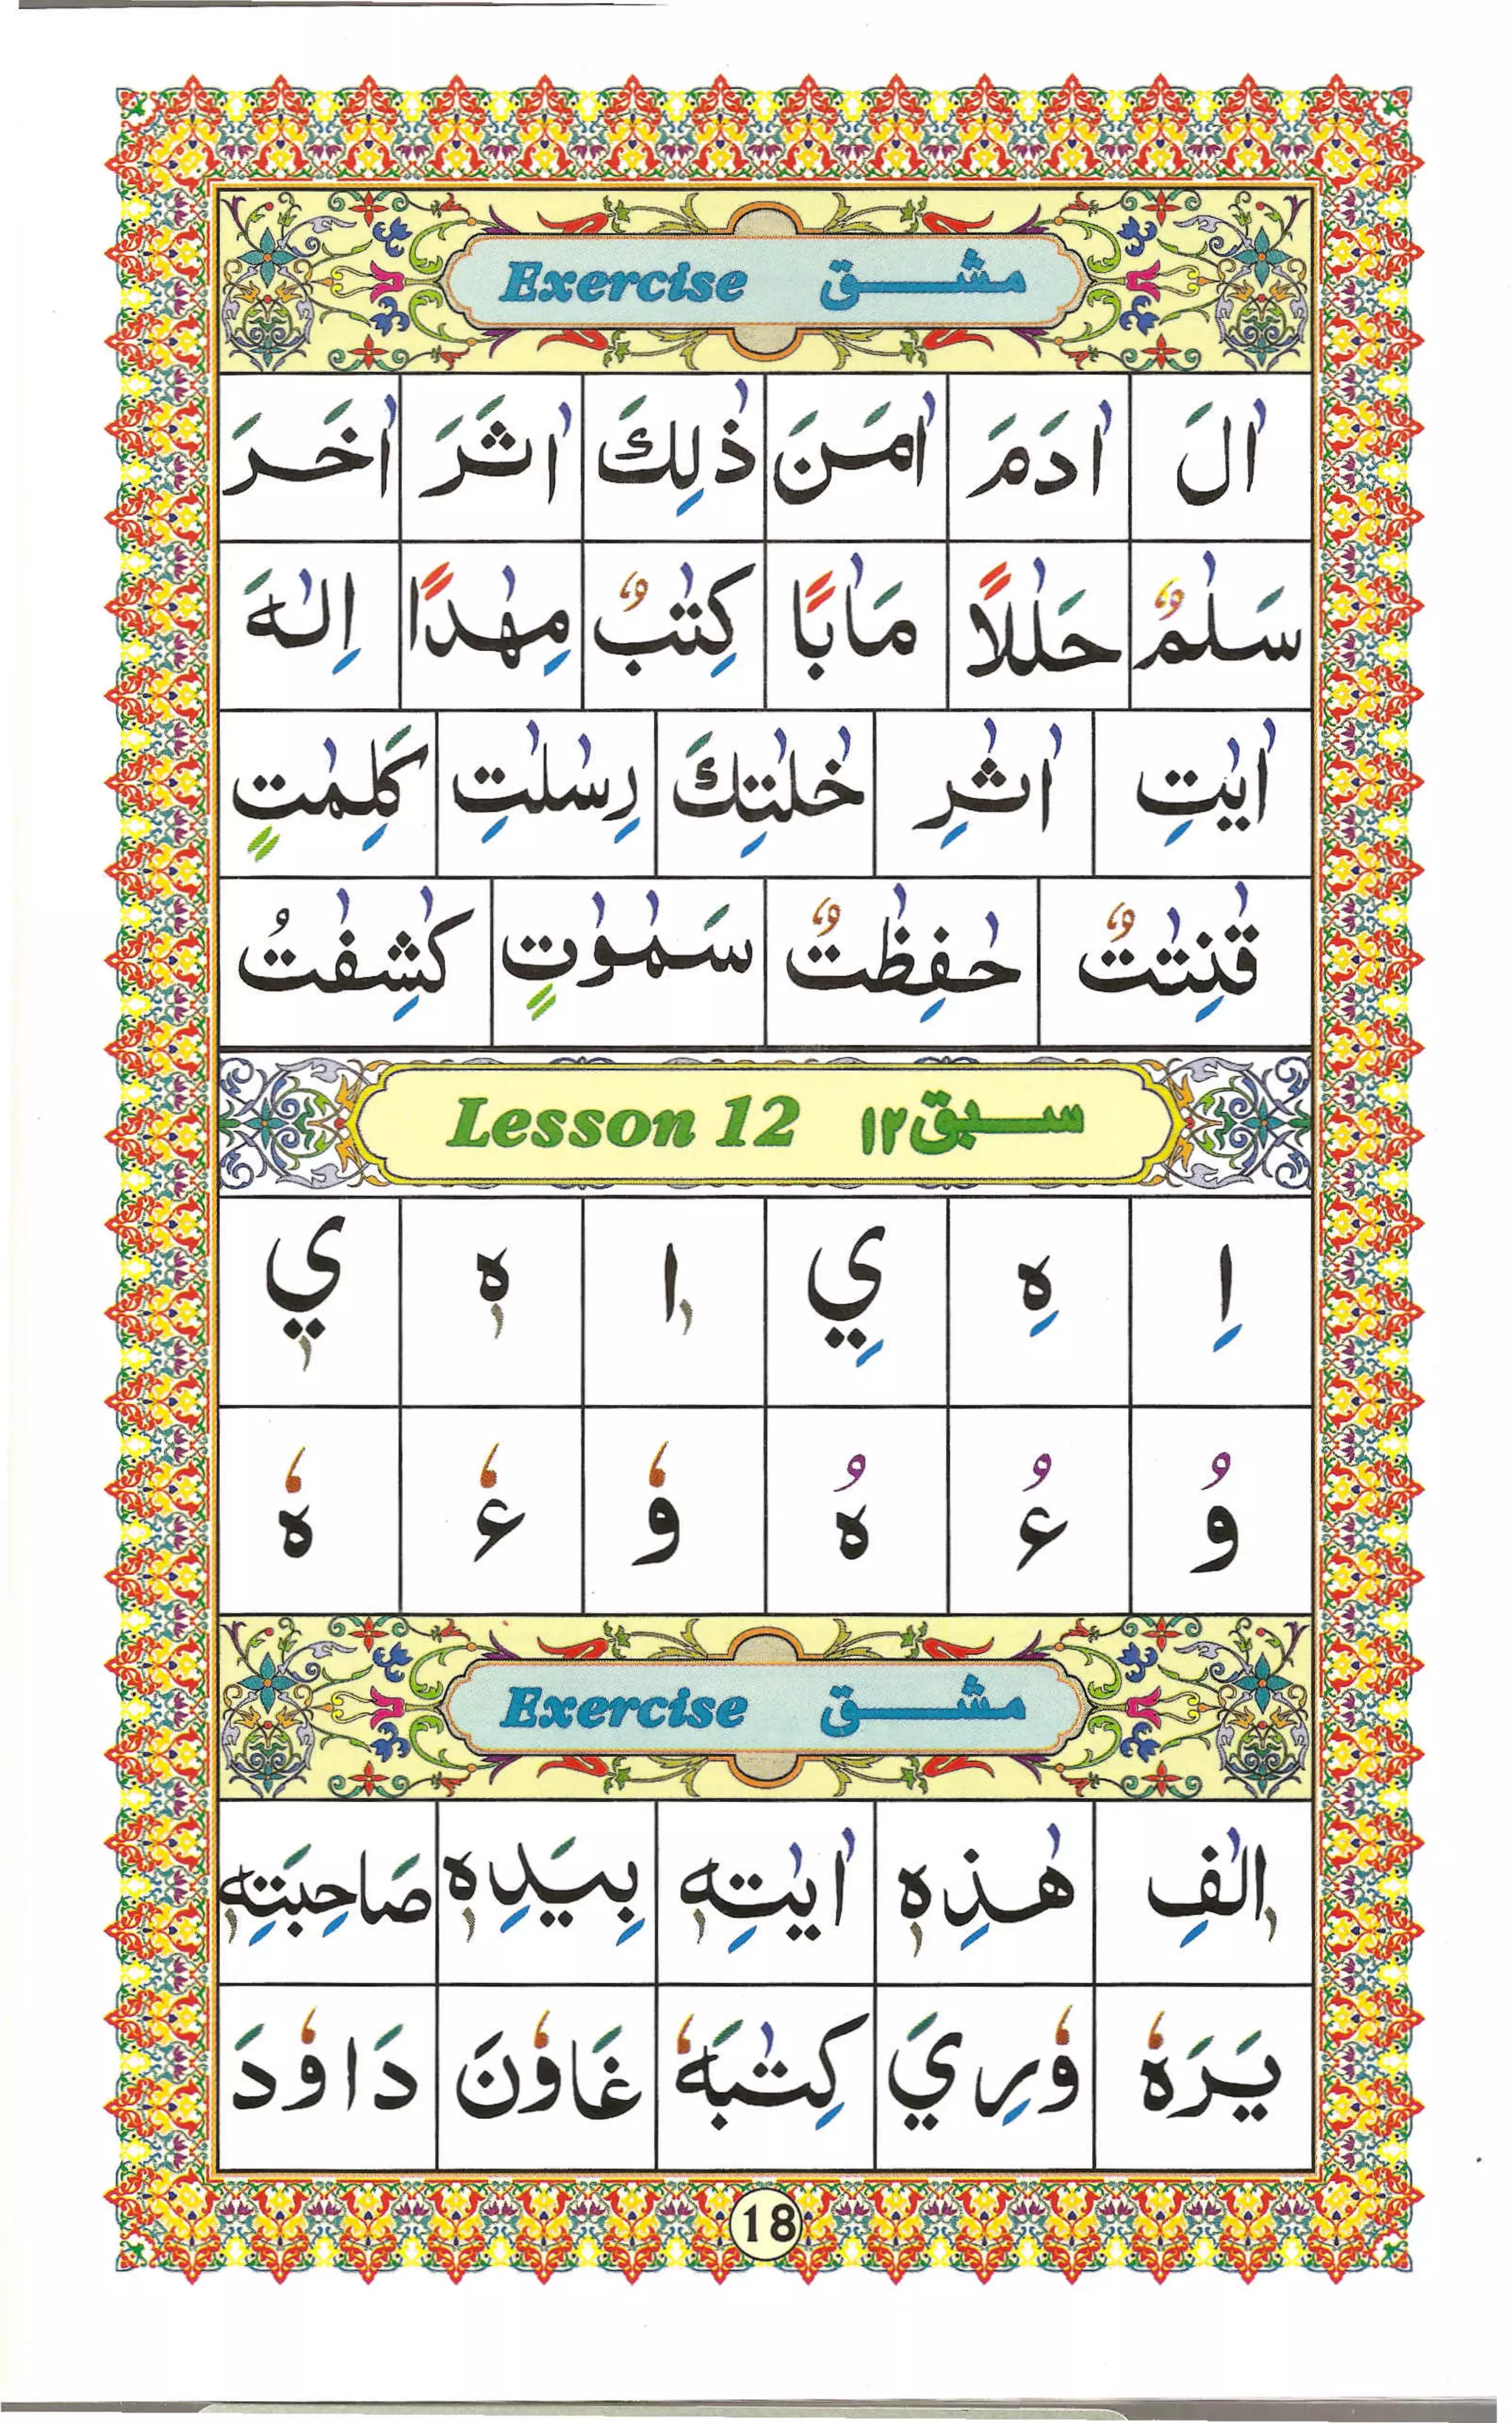 Exercise مشق
اٰلَ اٰدَمَ اٰمَنَ ذٰلِكَ اٰثَرَ اٰخَرَ
سَلٰمٌ حَلٰلًا مَاٰبًا كِتٰبٌ مِهٰدًا اِلٰهَ
اٰيٰتِ اٰثٰرِ خٰلٰتِكَ رِسٰلٰتِ كَلِمٰتٍ
قٰنِتٰتٌ حٰفِظٰتٌ سَمٰوٰتٍ كٰشِفٰتُ
Lesson 12 سبق ۱۲
اِ هِ يِ اٖ هٖ يٖ
وُ ءُ هُ وٗ ءٗ هٗ
Exercise مشق
اٖلٰفِ هٰذِهٖ اٰيٰتِهٖ بِيَدِهٖ صَاحِبَتِهٖ
يَرَهٗ وٗرِيَ كِتٰبَهٗ غَاوٗنَ دَاوٗدَ
18